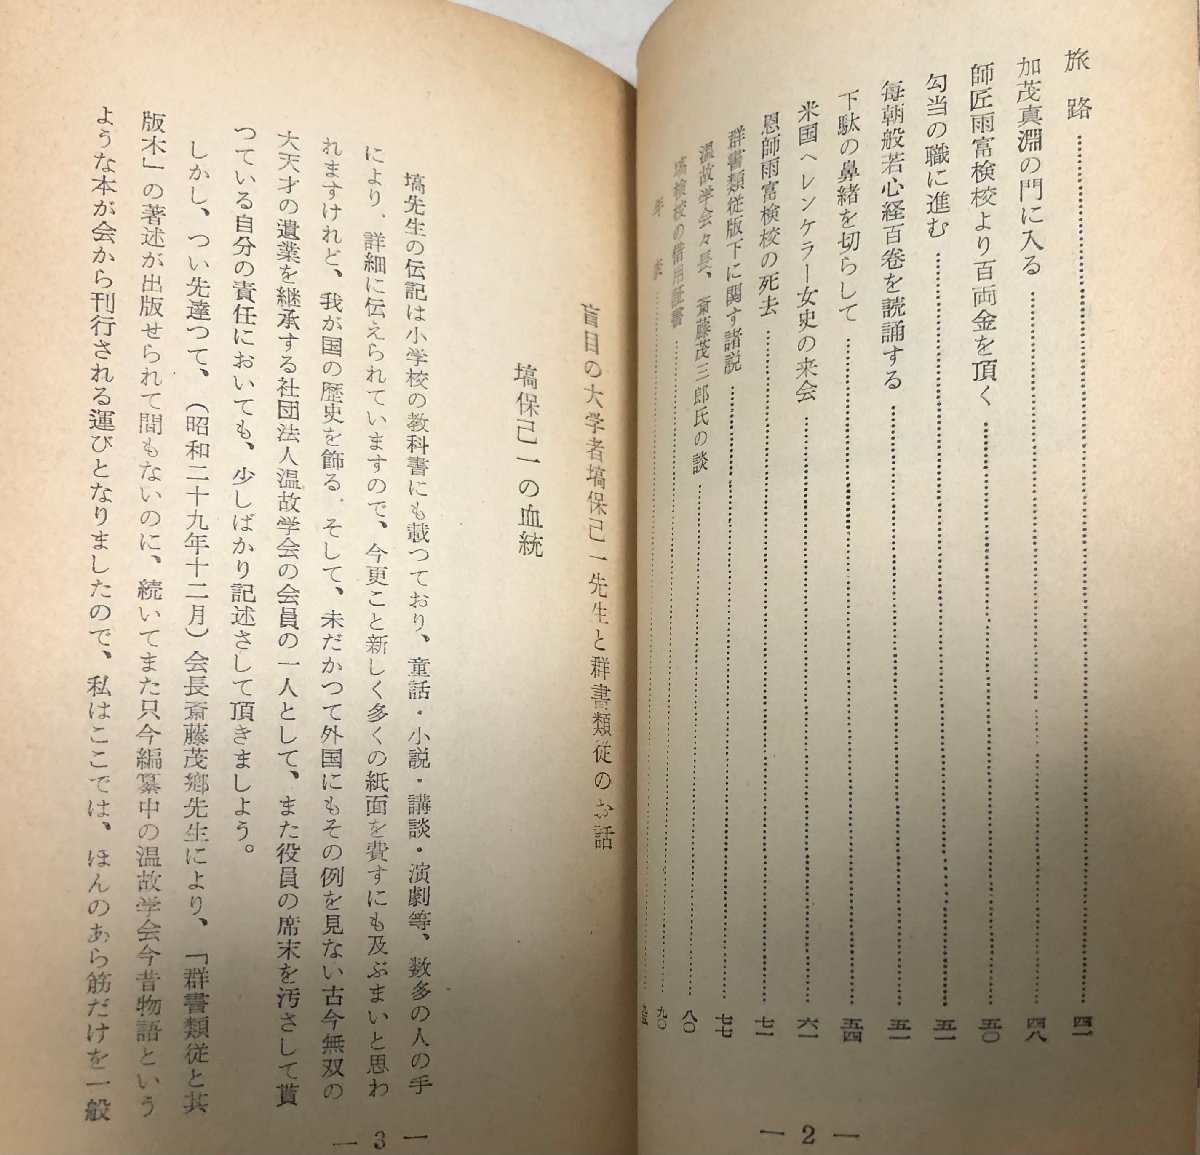 旅路……四一
加茂真淵の門に入る……四八
師匠雨富検校より百両金を頂く……五〇
勾当の職に進む……五一
毎朝般若心経百巻を読誦する……五一
下駄の鼻緒を切らして……五四
米国ヘレンケラー女史の来会……六一
恩師雨富検校の死去……七一
群書類従版下に関す諸説……七七
温故学会々長、斎藤茂三郎氏の談……八〇
塙検校の借用証書……九〇
年表……
— 2 —
盲目の大学者塙保己一先生と群書類従のお話
塙保己一の血統
塙先生の伝記は小学校の教科書にも載つており、童話・小説・講談・演劇等、数多の人の手
により、詳細に伝えられていますので、今更こと新しく多くの紙面を費すにも及ぶまいと思わ
れますけれど、我が国の歴史を飾る、そして、未だかつて外国にもその例を見ない古今無双の
大天才の遺業を継承する社団法人温故学会の会員の一人として、また役員の席末を汚さして貰
つている自分の責任においても、少しばかり記述さして頂きましよう。
しかし、つい先達つて、（昭和二十九年十二月）会長斎藤茂郷先生により、「群書類従と其
版木」の著述が出版せられて間もないのに、続いてまた只今編纂中の温故学会今昔物語という
ような本が会から刊行される運びとなりましたので、私はここでは、ほんのあら筋だけを一般
— 3 —